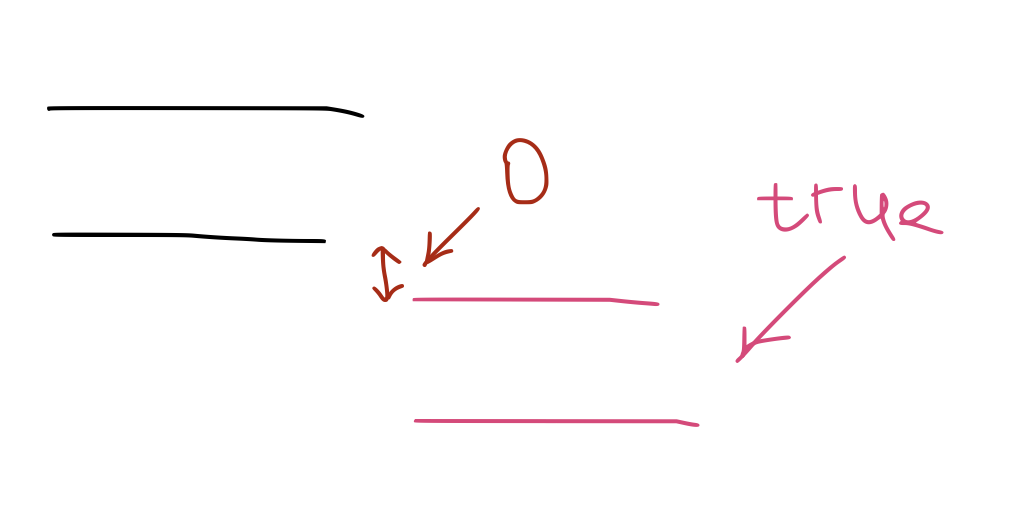 0
true